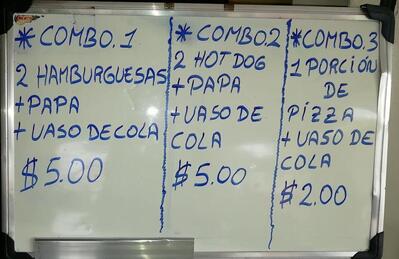 * COMBO.1
2 HAMBURGUESAS
+ PAPA
+ VASO DE COLA
$ 5.00
* COMBO.2
2 HOT DOG
+ PAPA
+ VASO DE
COLA
$ 5.00
* COMBO.3
1 PORCIÓN
DE
PIZZA
+ VASO DE
COLA
$ 2.00